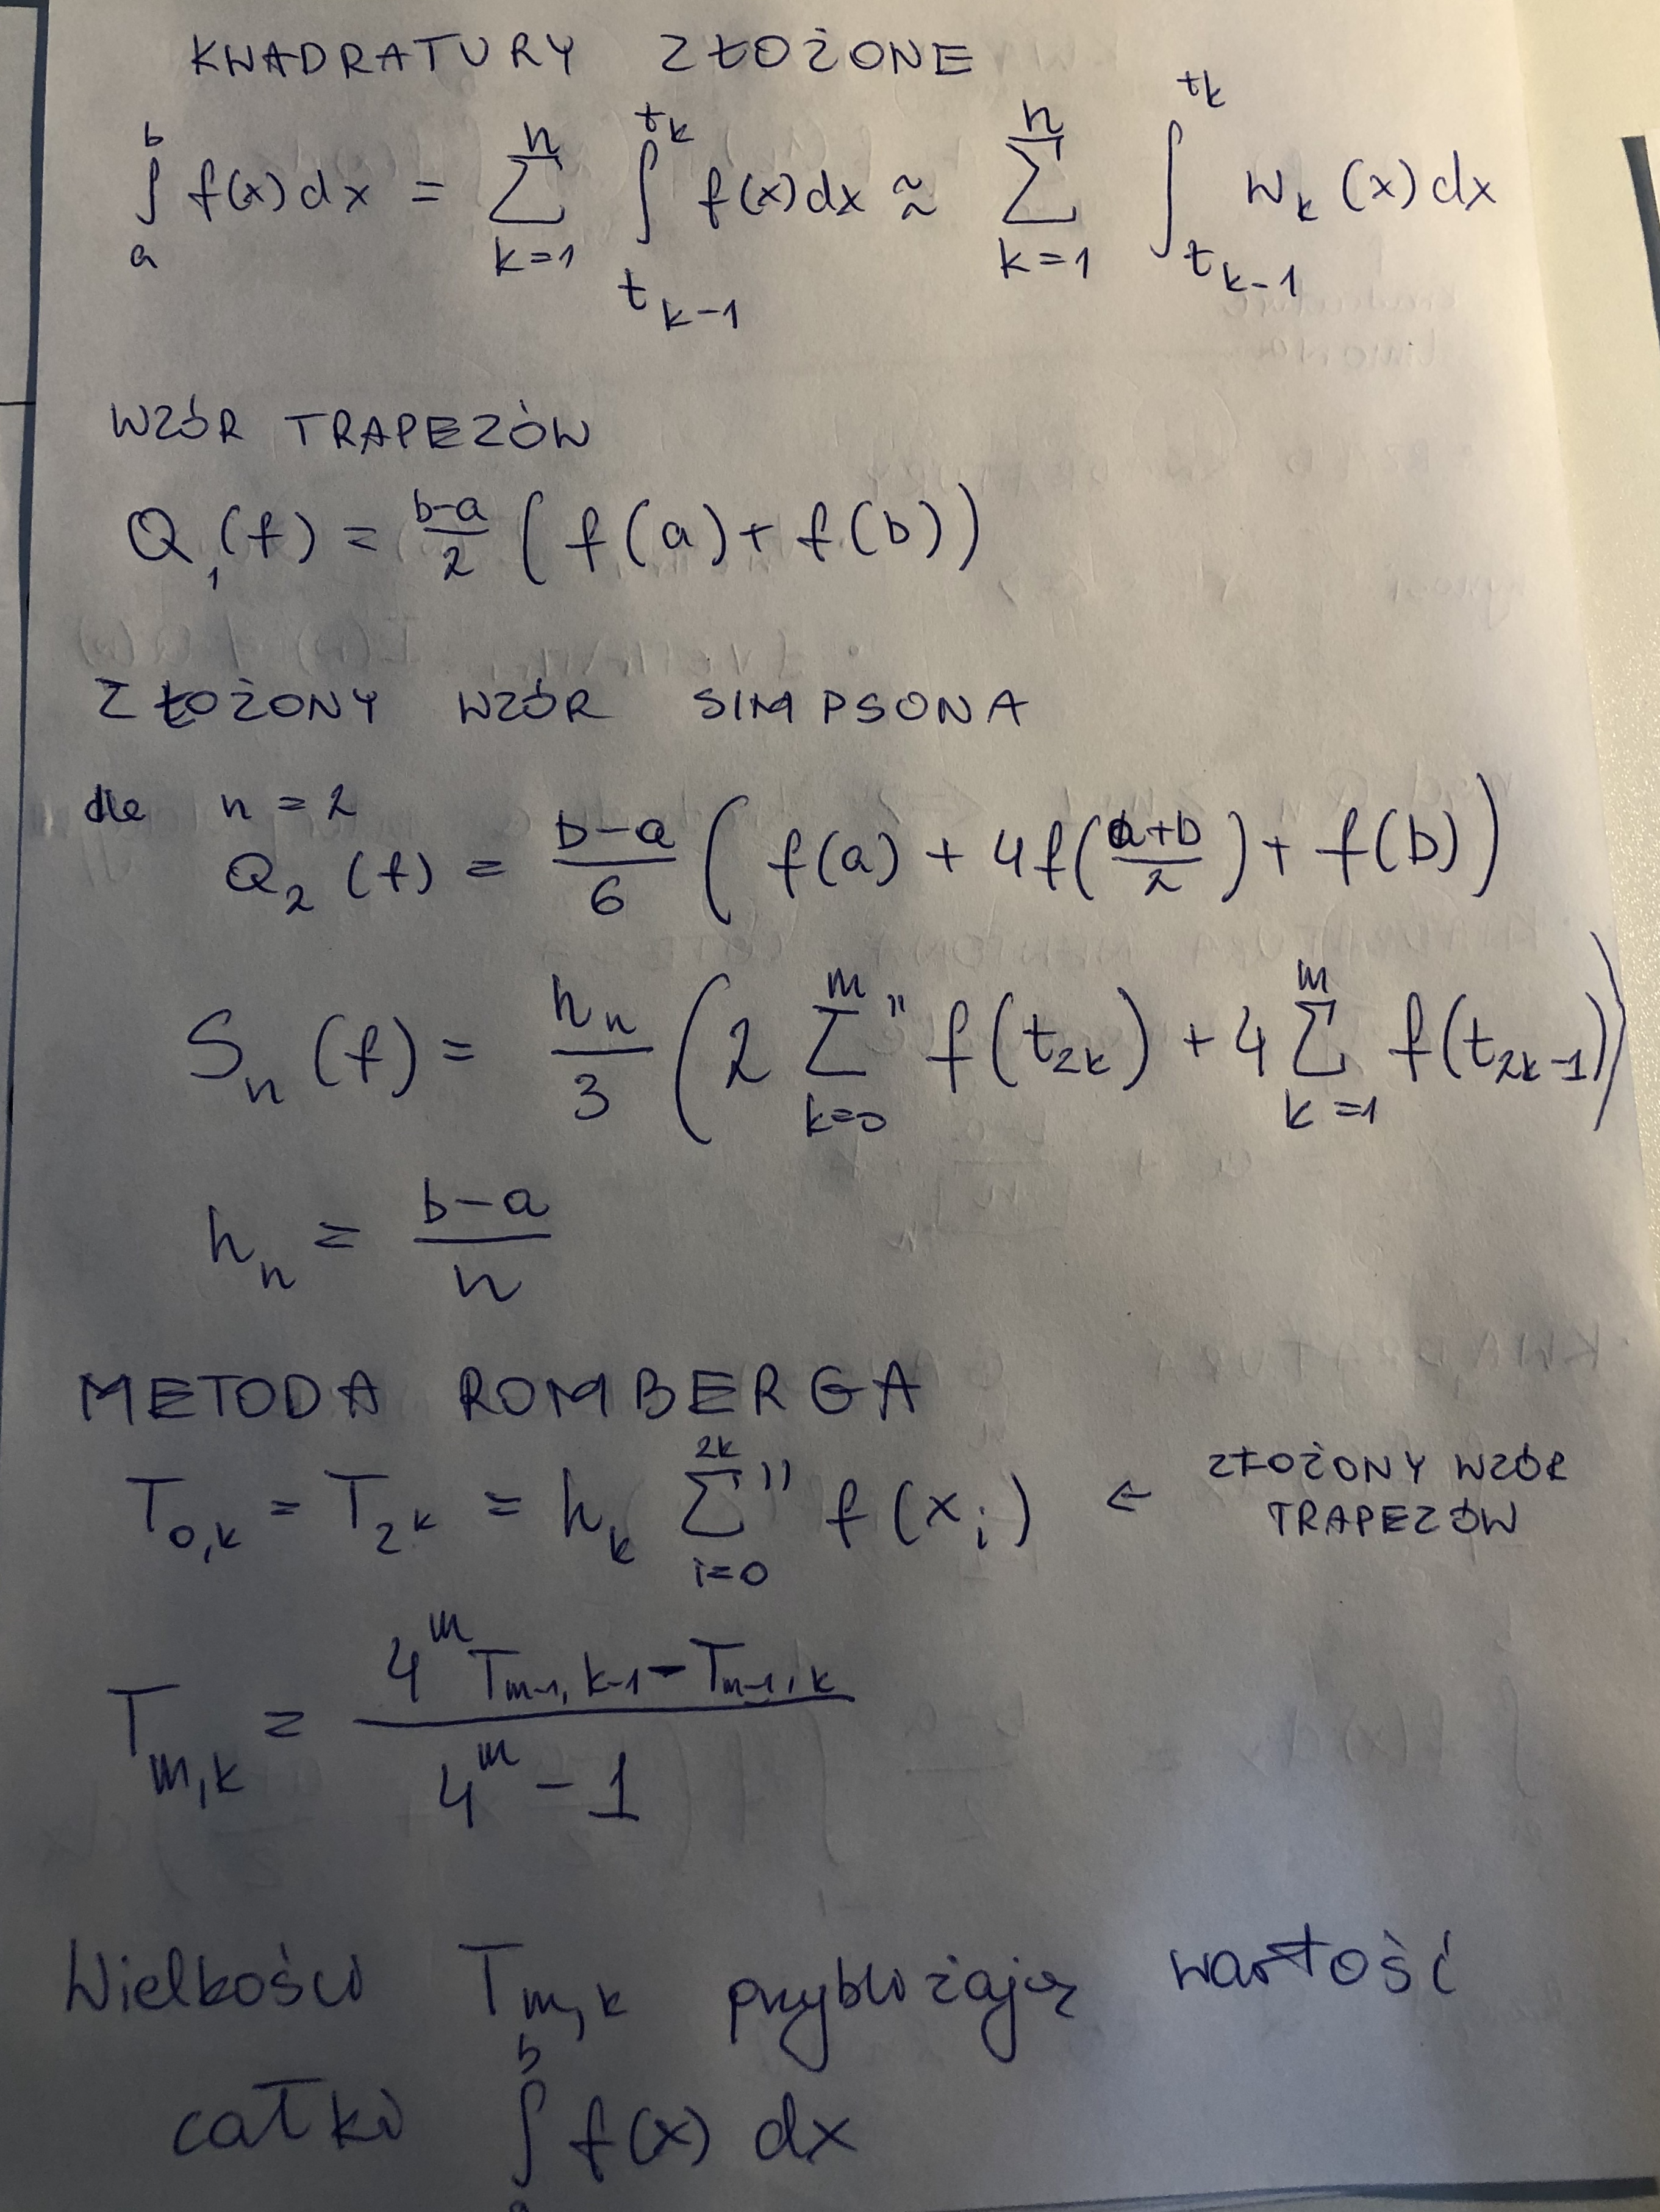 KWADRATURY ZŁOŻONE
∫_a^b f(x)dx = ∑_{k=1}^{n} ∫_{t_{k-1}}^{t_k} f(x)dx ≈ ∑_{k=1}^{n} ∫_{t_{k-1}}^{t_k} w_k(x)dx
WZÓR TRAPEZÓW
Q_1(f) = \frac{b-a}{2} (f(a) + f(b))
ZŁOŻONY WZÓR SIMPSONA
dla n = 2
Q_2(f) = \frac{b-a}{6} (f(a) + 4f(\frac{a+b}{2}) + f(b))
S_n(f) = \frac{h_n}{3} (2 ∑_{k=0}^{m}'' f(t_{2k}) + 4 ∑_{k=1}^{m} f(t_{2k-1}))
h_n = \frac{b-a}{n}
METODA ROMBERGA
T_{0,k} = T_{2^k} = h_k ∑_{i=0}^{2k}'' f(x_i) ← ZŁOŻONY WZÓR
TRAPEZÓW
T_{m,k} = \frac{4^m T_{m-1,k-1} - T_{m-1,k}}{4^m - 1}
Wielkości T_{m,k} przybliżają wartość
całki ∫_a^b f(x) dx